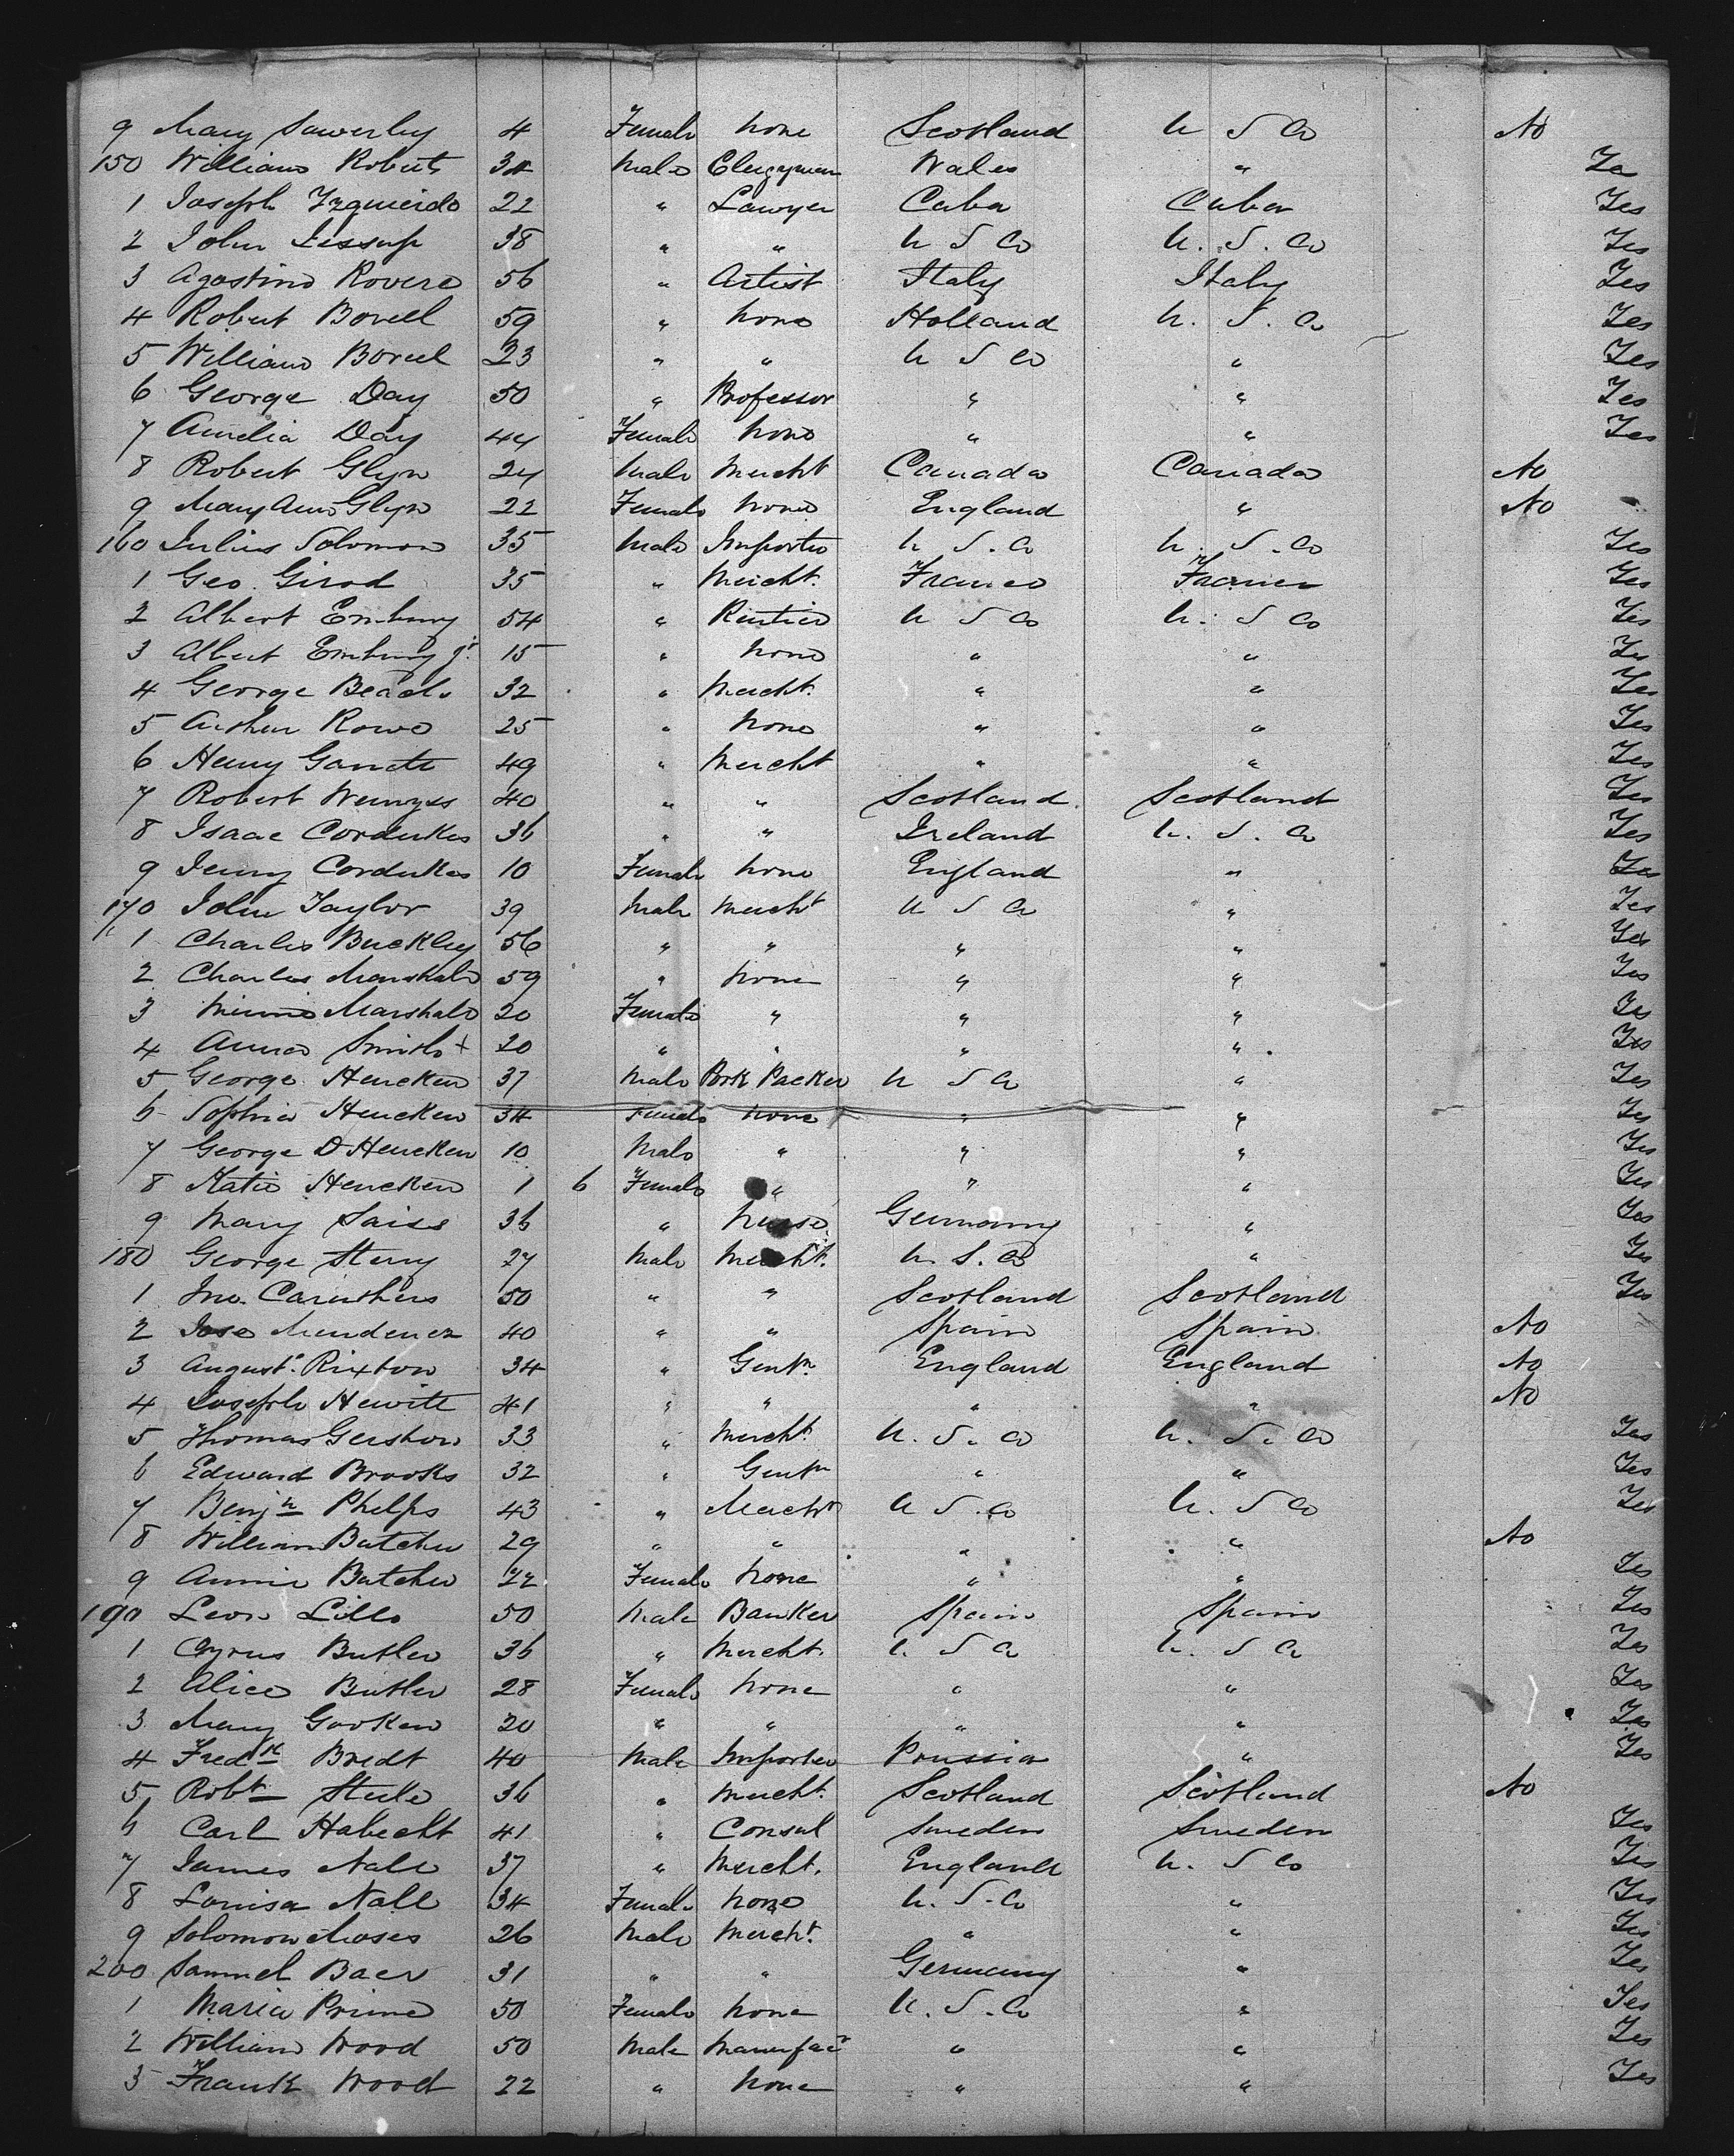 9 Mary Sowerby 4 Female None Scotland U S A No
150 William Roberts 34 Male Clergyman Wales " Yes
1 Joseph Izquierdo 22 " Lawyer Cuba Cuba Yes
2 John Jessup 38 " " U S A U. S. A Yes
3 Agostino Rovere 56 " Artist Italy Italy Yes
4 Robert Boreel 59 " None Holland U. S. A Yes
5 William Boreel 23 " " U S A " Yes
6 George Day 50 " Professor " " Yes
7 Amelia Day 44 Female None " " Yes
8 Robert Glyn 24 Male Mercht Canada Canada No
9 Mary Ann Glyn 22 Female None England " No
160 Julius Solomon 35 Male Importer U. S. A U. S. A Yes
1 Geo. Girod 35 " Mercht. France France Yes
2 Albert Embury 54 " Rentier U S A U. S A Yes
3 Albert Embury Jr. 15 " None " " Yes
4 George Beach 32 " Mercht. " " Yes
5 Arthur Rowe 25 " None " " Yes
6 Henry 49 " Mercht " " Yes
7 Robert Wemyss 40 " " Scotland. Scotland Yes
8 Isaac Cordukes 36 " " Ireland U. S. A Yes
9 Jenny Cordukes 10 Female None England " Yes
170 John Taylor 39 Male Mercht U S A " Yes
1 Charles Buckley 56 " " " " Yes
2 Charles Marshall 59 " None " " Yes
3 Minnie Marshall 20 Female " " " Yes
4 Annie Smith + 20 " " " " Yes
5 George Hencken 37 Male Pork Packer U S A " Yes
6 Sophia Hencken 34 Female None " " Yes
7 George D Hencken 10 Male " " " Yes
8 Katie Hencken 1 6 Female " " " Yes
9 Mary Saiss 36 " Nurse Germany " Yes
180 George Sterry 27 Male Mercht. U. S. A " Yes
1 Jno. Caruthers 50 " " Scotland Scotland Yes
2 Jose Menendez 40 " " Spain Spain No
3 August. Rixton 34 " Gentn. England England No
4 Joseph Hewitt 41 " " " " No
5 Thomas Gershow 33 " Mercht. U. S. A U. S. A Yes
6 Edward Brooks 32 " Gentn " " Yes
7 Benjn Phelps 43 " Mercht U S. A U. S A Yes
8 William Butcher 29 " " " " No
9 Annie Butcher 22 Female None " " Yes
190 Leon Lillo 50 Male Banker Spain Spain Yes
1 Cyrus Butler 36 " Mercht. U. S A U. S A Yes
2 Alice Butler 28 Female None " " Yes
3 Mary Gooken 20 " " " " Yes
4 Fredk Bredt 40 Male Importer Prussia " Yes
5 Robt Steele 36 " Mercht. Scotland Scotland No
6 Carl Habicht 41 " Consul Sweden Sweden Yes
7 James Nall 37 " Mercht. England U. S A Yes
8 Louisa Nall 34 Female None U. S. A " Yes
9 Solomon Moses 26 Male Mercht. " " Yes
200 Samuel Baer 31 " " Germany " Yes
1 Maria Prime 50 Female None U. S. A " Yes
2 William Wood 50 Male Manufacr " " Yes
3 Frank Wood 22 " None " " Yes